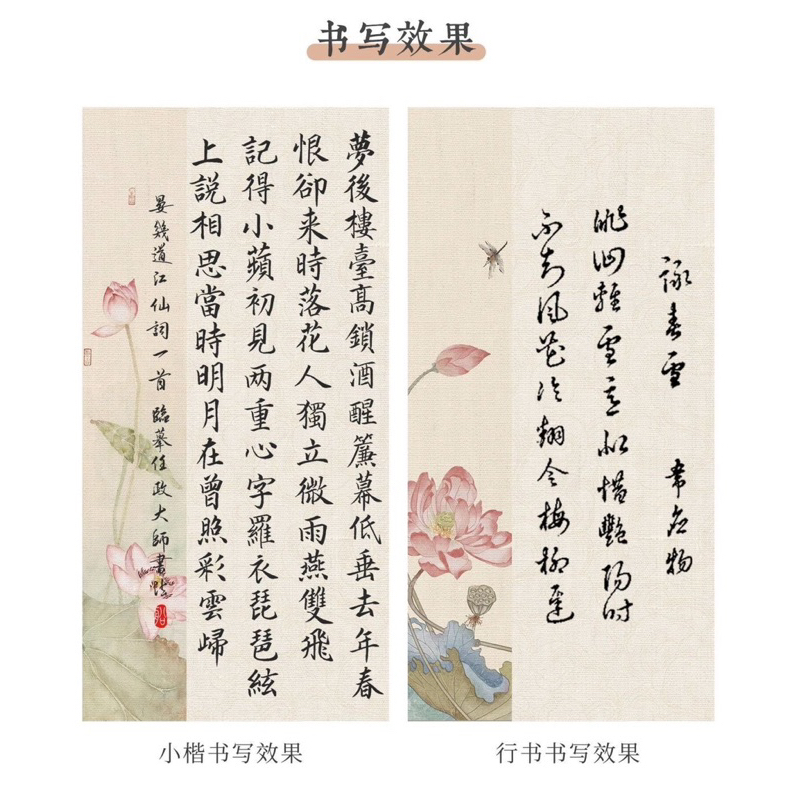 书写效果
夢後樓臺高鎖酒醒簾幕低垂去年春
恨卻来時落花人獨立微雨燕雙飛
記得小蘋初見两重心字羅衣琵琶絃
上説相思當時明月在曾照彩雲歸
晏幾道江仙詞一首 臨摹任政大師書
詠春雪 韋應物
徘徊輕雪意似惜艷陽時
不知風花冷翻令梅柳遲
小楷书写效果
行书书写效果